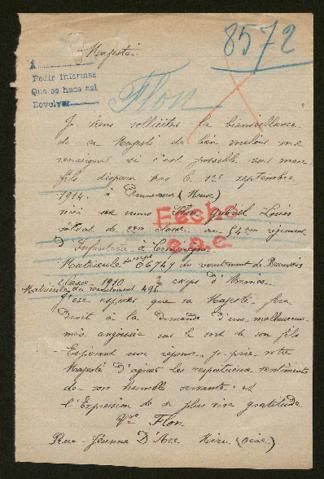 Majesté
8572
A
Pedir informes
Que se haga así
Devolver
Flon
Je viens solliciter la bienveillance
de sa Majesté de bien vouloir me
renseigner si c'est possible sur mon
fils disparu depuis le 1er septembre
1914 à (Meuse)
Flon Gabriel Louis
soldat de au 54me régiment
d'Infanterie à Compiègne
Matricule 06749 du recrutement de Beauvais
classe 1910 2e corps d'Armée
Matricule du recrutement 496
J'ose espérer que sa Majesté fera
Droit à la demande d'une malheureuse
mère angoissée sur le sort de son fils
Espérant une réponse je prie votre
Majesté d'agréer les respectueux sentiments
de son humble servante et
l'Expression de sa plus vive gratitude
Vve Flon
Rue Jeanne D'Arc Méru (Oise)
Fecho